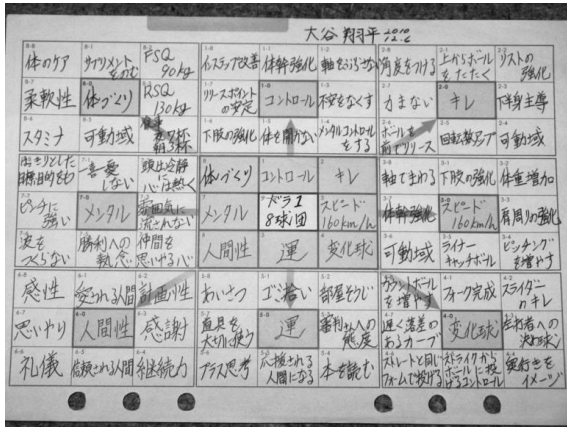 大谷翔平 2010 12.6
体のケア サプリメントをのむ FSQ 90kg インステップ改善 体幹強化 軸をぶらさない 角度をつける 上からボールをたたく リストの強化
柔軟性 体づくり RSQ 130kg リリースポイントの安定 コントロール 不安をなくす 力まない キレ 下半身主導
スタミナ 可動域 食事 夜7杯 朝3杯 下肢の強化 体を開かない メンタルコントロールをする ボールを前でリリース 回転数アップ 可動域
はっきりとした目標、目的をもつ 一喜一憂しない 頭は冷静に心は熱く 体づくり コントロール キレ 軸でまわる 下肢の強化 体重増加
ピンチに強い メンタル 雰囲気に流されない メンタル ドラ1 8球団 スピード160km/h 体幹強化 スピード160km/h 肩周りの強化
波をつくらない 勝利への執念 仲間を思いやる心 人間性 運 変化球 可動域 ライナーキャッチボール ピッチングを増やす
感性 愛される人間 計画性 あいさつ ゴミ拾い 部屋そうじ カウントボールを増やす フォーク完成 スライダーのキレ
思いやり 人間性 感謝 道具を大切に使う 運 審判さんへの態度 遅く落差のあるカーブ 変化球 左打者への決め球
礼儀 信頼される人間 継続力 プラス思考 応援される人間になる 本を読む ストレートと同じフォームで投げる ストライクからボールに投げるコントロール 奥行きをイメージ